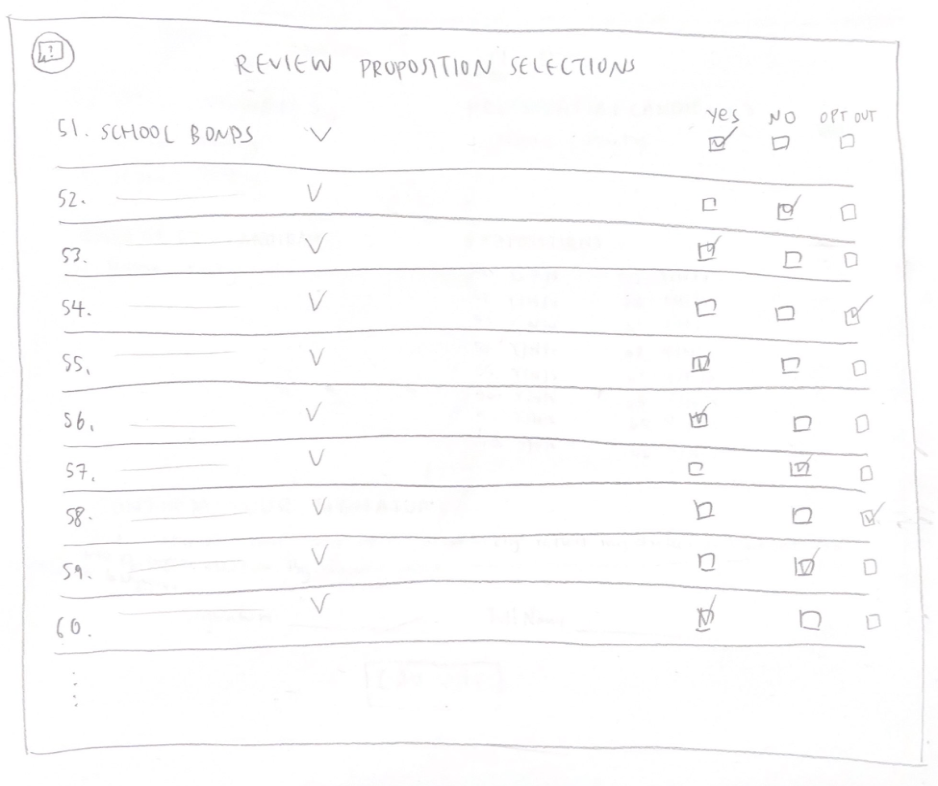 ?
REVIEW PROPOSITION SELECTIONS
YES NO OPT OUT
51. SCHOOL BONDS
52.
53.
54.
55.
56.
57.
58.
59.
60.